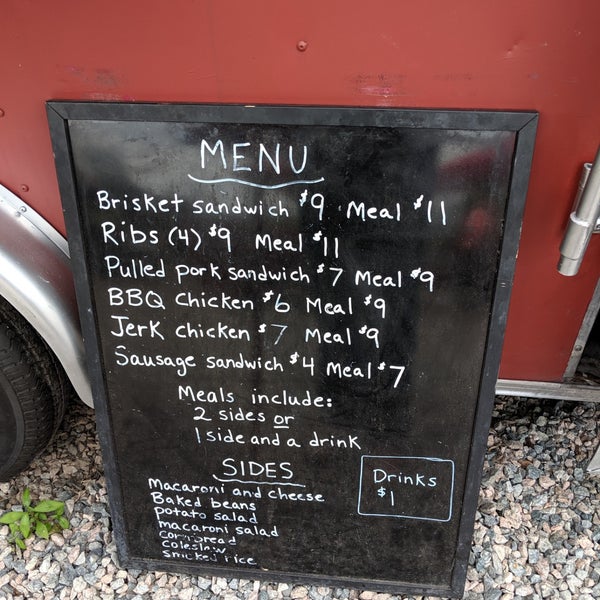 MENU
Brisket sandwich $9 Meal $11
Ribs (4) $9 Meal $11
Pulled pork sandwich $7 Meal $9
BBQ Chicken $6 Meal $9
Jerk chicken $7 Meal $9
Sausage sandwich $4 Meal $7
Meals include:
2 sides or
1 side and a drink
SIDES
Macaroni and cheese
Baked beans
potato salad
macaroni salad
cornbread
coleslaw
smoked rice
Drinks
$1